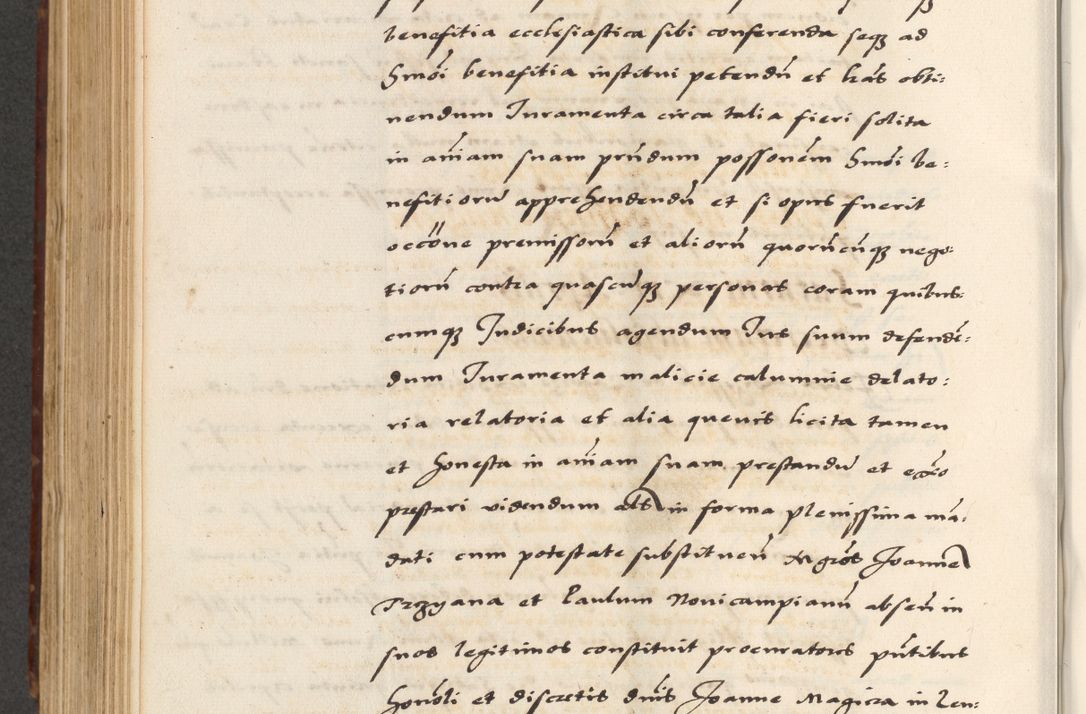 benefitia ecclesiastica sibi conferenda seqꝫ ad
Hmōi benefitia institui petendū et lrās obti-
nendum Iuramenta circa talia fieri solita
in aīam suam prñdum possoñem Hmōi be-
nefitiorū apprehendendū et si opus fuerit
occōne premissorū et aliorū quorūcūqꝫ nego-
tiorū contra quascūqꝫ personas coram quibus-
cumqꝫ Iudicibus agendum Ius suum defendē-
dum Iuramenta malicie calumnie delato-
ria relatoria et alia quevis licita tamen
et honesta in aīam suam prestandū et
prestari videndum als in forma plenissima mā-
dati cum potestate substituen̄ Mgrōs Joannē
et Paulum Novicampianū absen̄ in
suos legitimos constituit procuratores pn̄tibus
Honōli et discretis dnīs Joanne Magiera in Len-